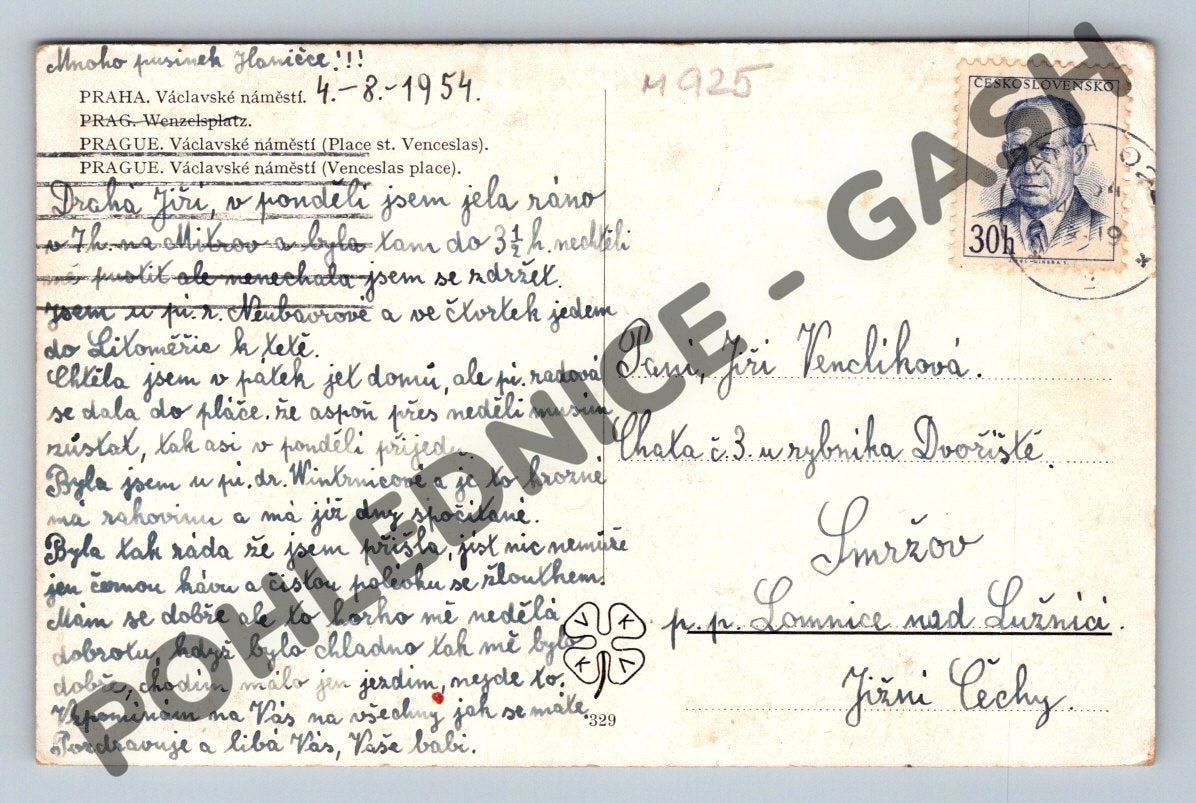 Mnoho pusinek Haničce!!!
4.-8.-1954.
M 925
PRAHA. Václavské náměstí.
PRAG. Wenzelsplatz.
PRAGUE. Václavské náměstí (Place st. Venceslas).
PRAGUE. Václavské náměstí (Venceslas place).
Drahá Jiří, v pondělí jsem jela ráno
v 7h. na Mitrov a byla tam do 3 1/2 h. nechtěli
mě pustit ale nenechala jsem se zdržet.
Jsem u pí. r. Neubavrové a ve čtvrtek jedem
do Litoměřic k tetě.
Chtěla jsem v pátek jet domů, ale pí. radová
se dala do pláče. že aspoň přes neděli musím
zůstat, tak asi v pondělí přijedu
Byla jsem u pí. dr. Wintrnicové a je to hrozné
má rakovinu a má již dny spočítané.
Byla tak ráda že jsem přišla, jíst nic nemůže
jen černou kávu a čistou polévku se žloutkem.
Mám se dobře ale to horko mě nedělá
dobrotu, když bylo chladno tak mě bylo
dobře, chodím málo jen jezdím, nejde to.
Vzpomínám na Vás na všechny jak se máte.
Pozdravuje a líbá Vás, Vaše babi.
ČESKOSLOVENSKO
30h
Paní, Jiří Venclíková.
Chata č. 3. u rybníka Dvořiště.
Smržov
p.p. Lomnice nad Lužnicí.
Jižní Čechy.
V K
K V
329
POHLEDNICE - GASH